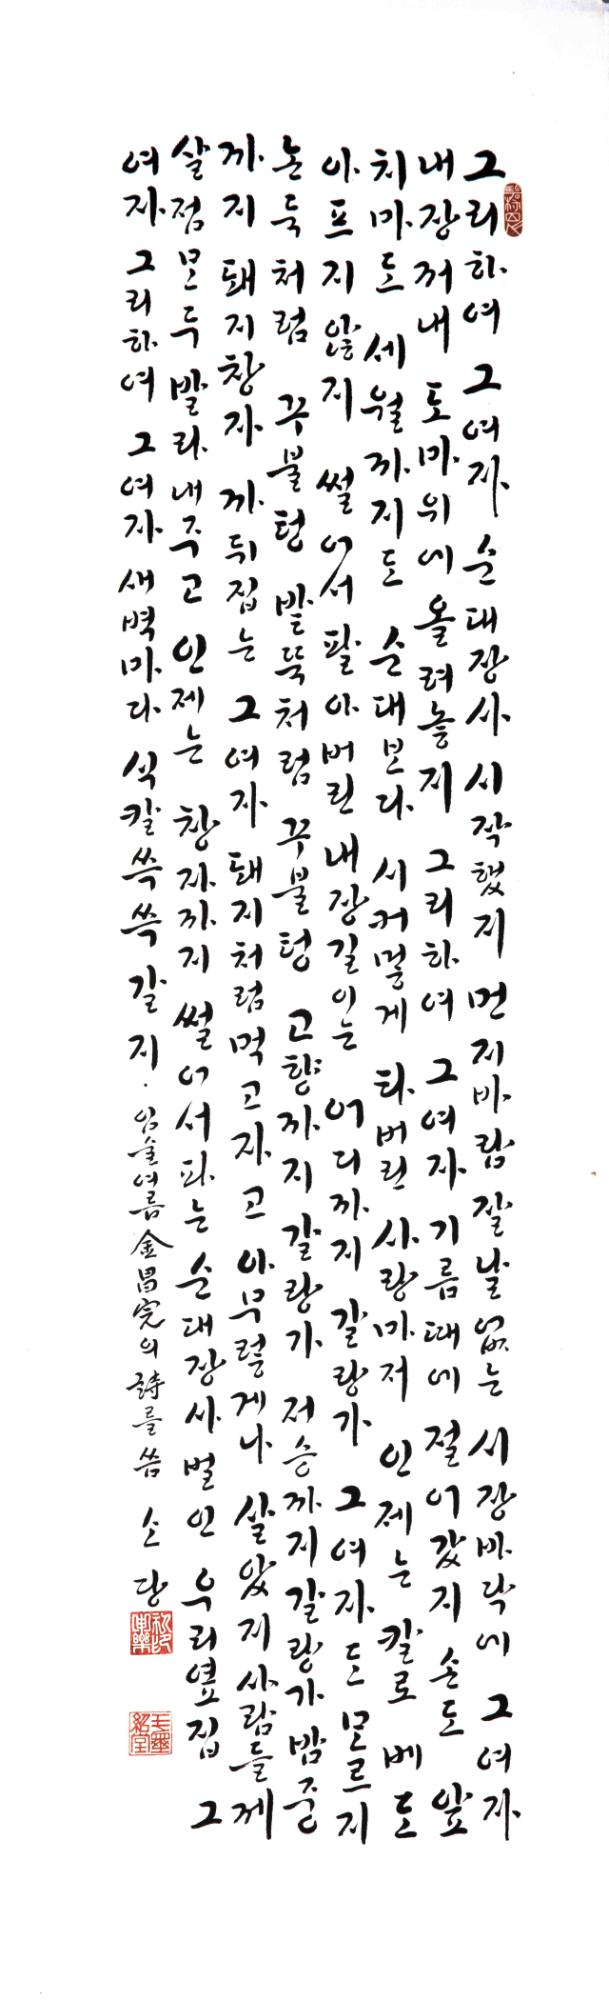 그리하여 그여자 순대장사 시작했지 먼지바람 잘날 없는 시장바닥에 그여자
내장꺼내 도마위에 올려놓지 그리하여 그여자 기름때에 절어갔지 손도 앞
치마도 세월까지도 순대보다 시커멓게 타버린 사랑마저 인제는 칼로 베도
아프지않지 썰어서 팔아버린 내장길이는 어디까지 갈랑가 그여자도 모르지
논둑처럼 꾸불텅 밭뚝처럼 꾸불텅 고향까지 갈랑가 저승까지갈랑가 밤중
까지 돼지창자 까뒤집는 그여자 돼지처럼먹고자고 아무렇게나 살았지 사람들께
살점모두 발라내주고 인제는 창자까지 썰어서파는 순대장사벌인 우리옆집 그
여자 그리하여 그여자 새벽마다 식칼쓱쓱 갈지. 임술여름 金昌完의 詩를씀 소당